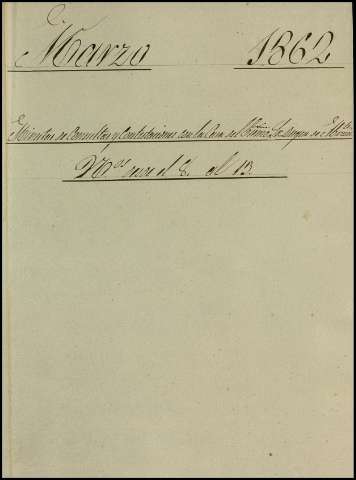 Marzo 1862
Minutas de Consultas y Contestaciones con la Casa del Exmo. Sr. Duque de
Nos. desde el 8. al 13.